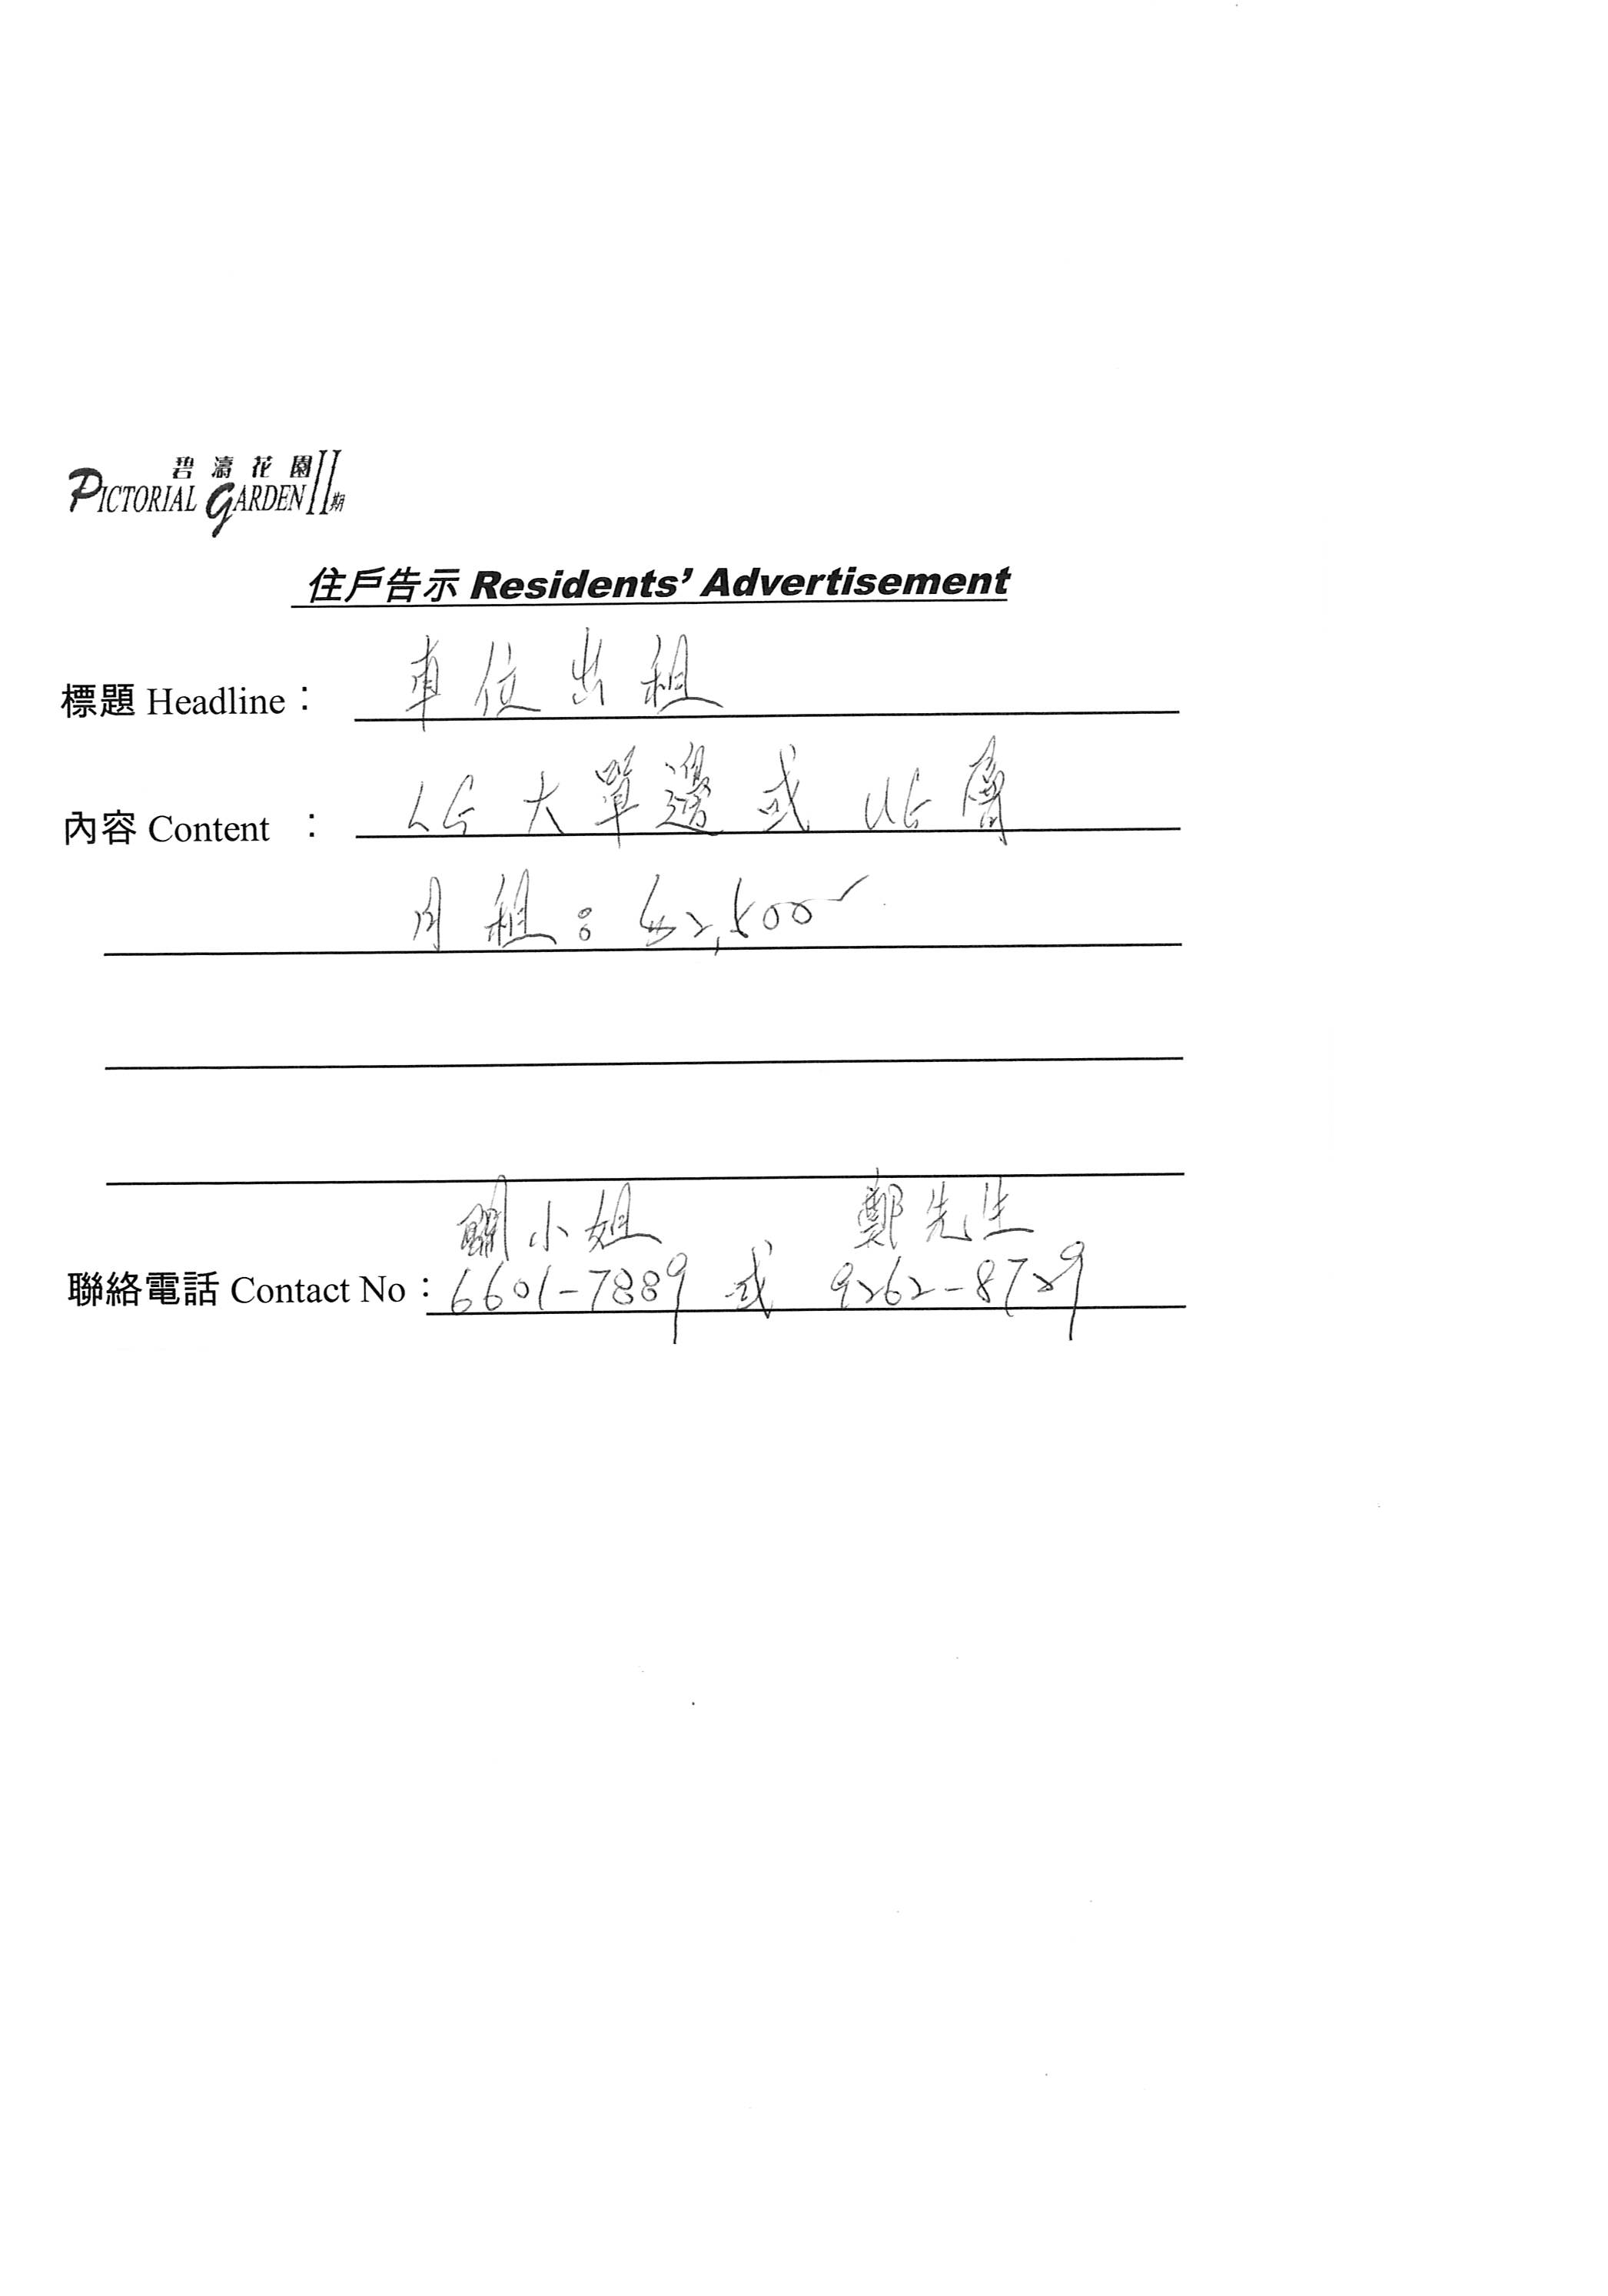 碧濤花園II期
PICTORIAL GARDEN
住戶告示 Residents’ Advertisement
標題 Headline： 車位出租
內容 Content ： LG 大單邊或 UG 層
月租：$2,500
關小姐 鄭先生
聯絡電話 Contact No： 6601-7889 或 9262-8729